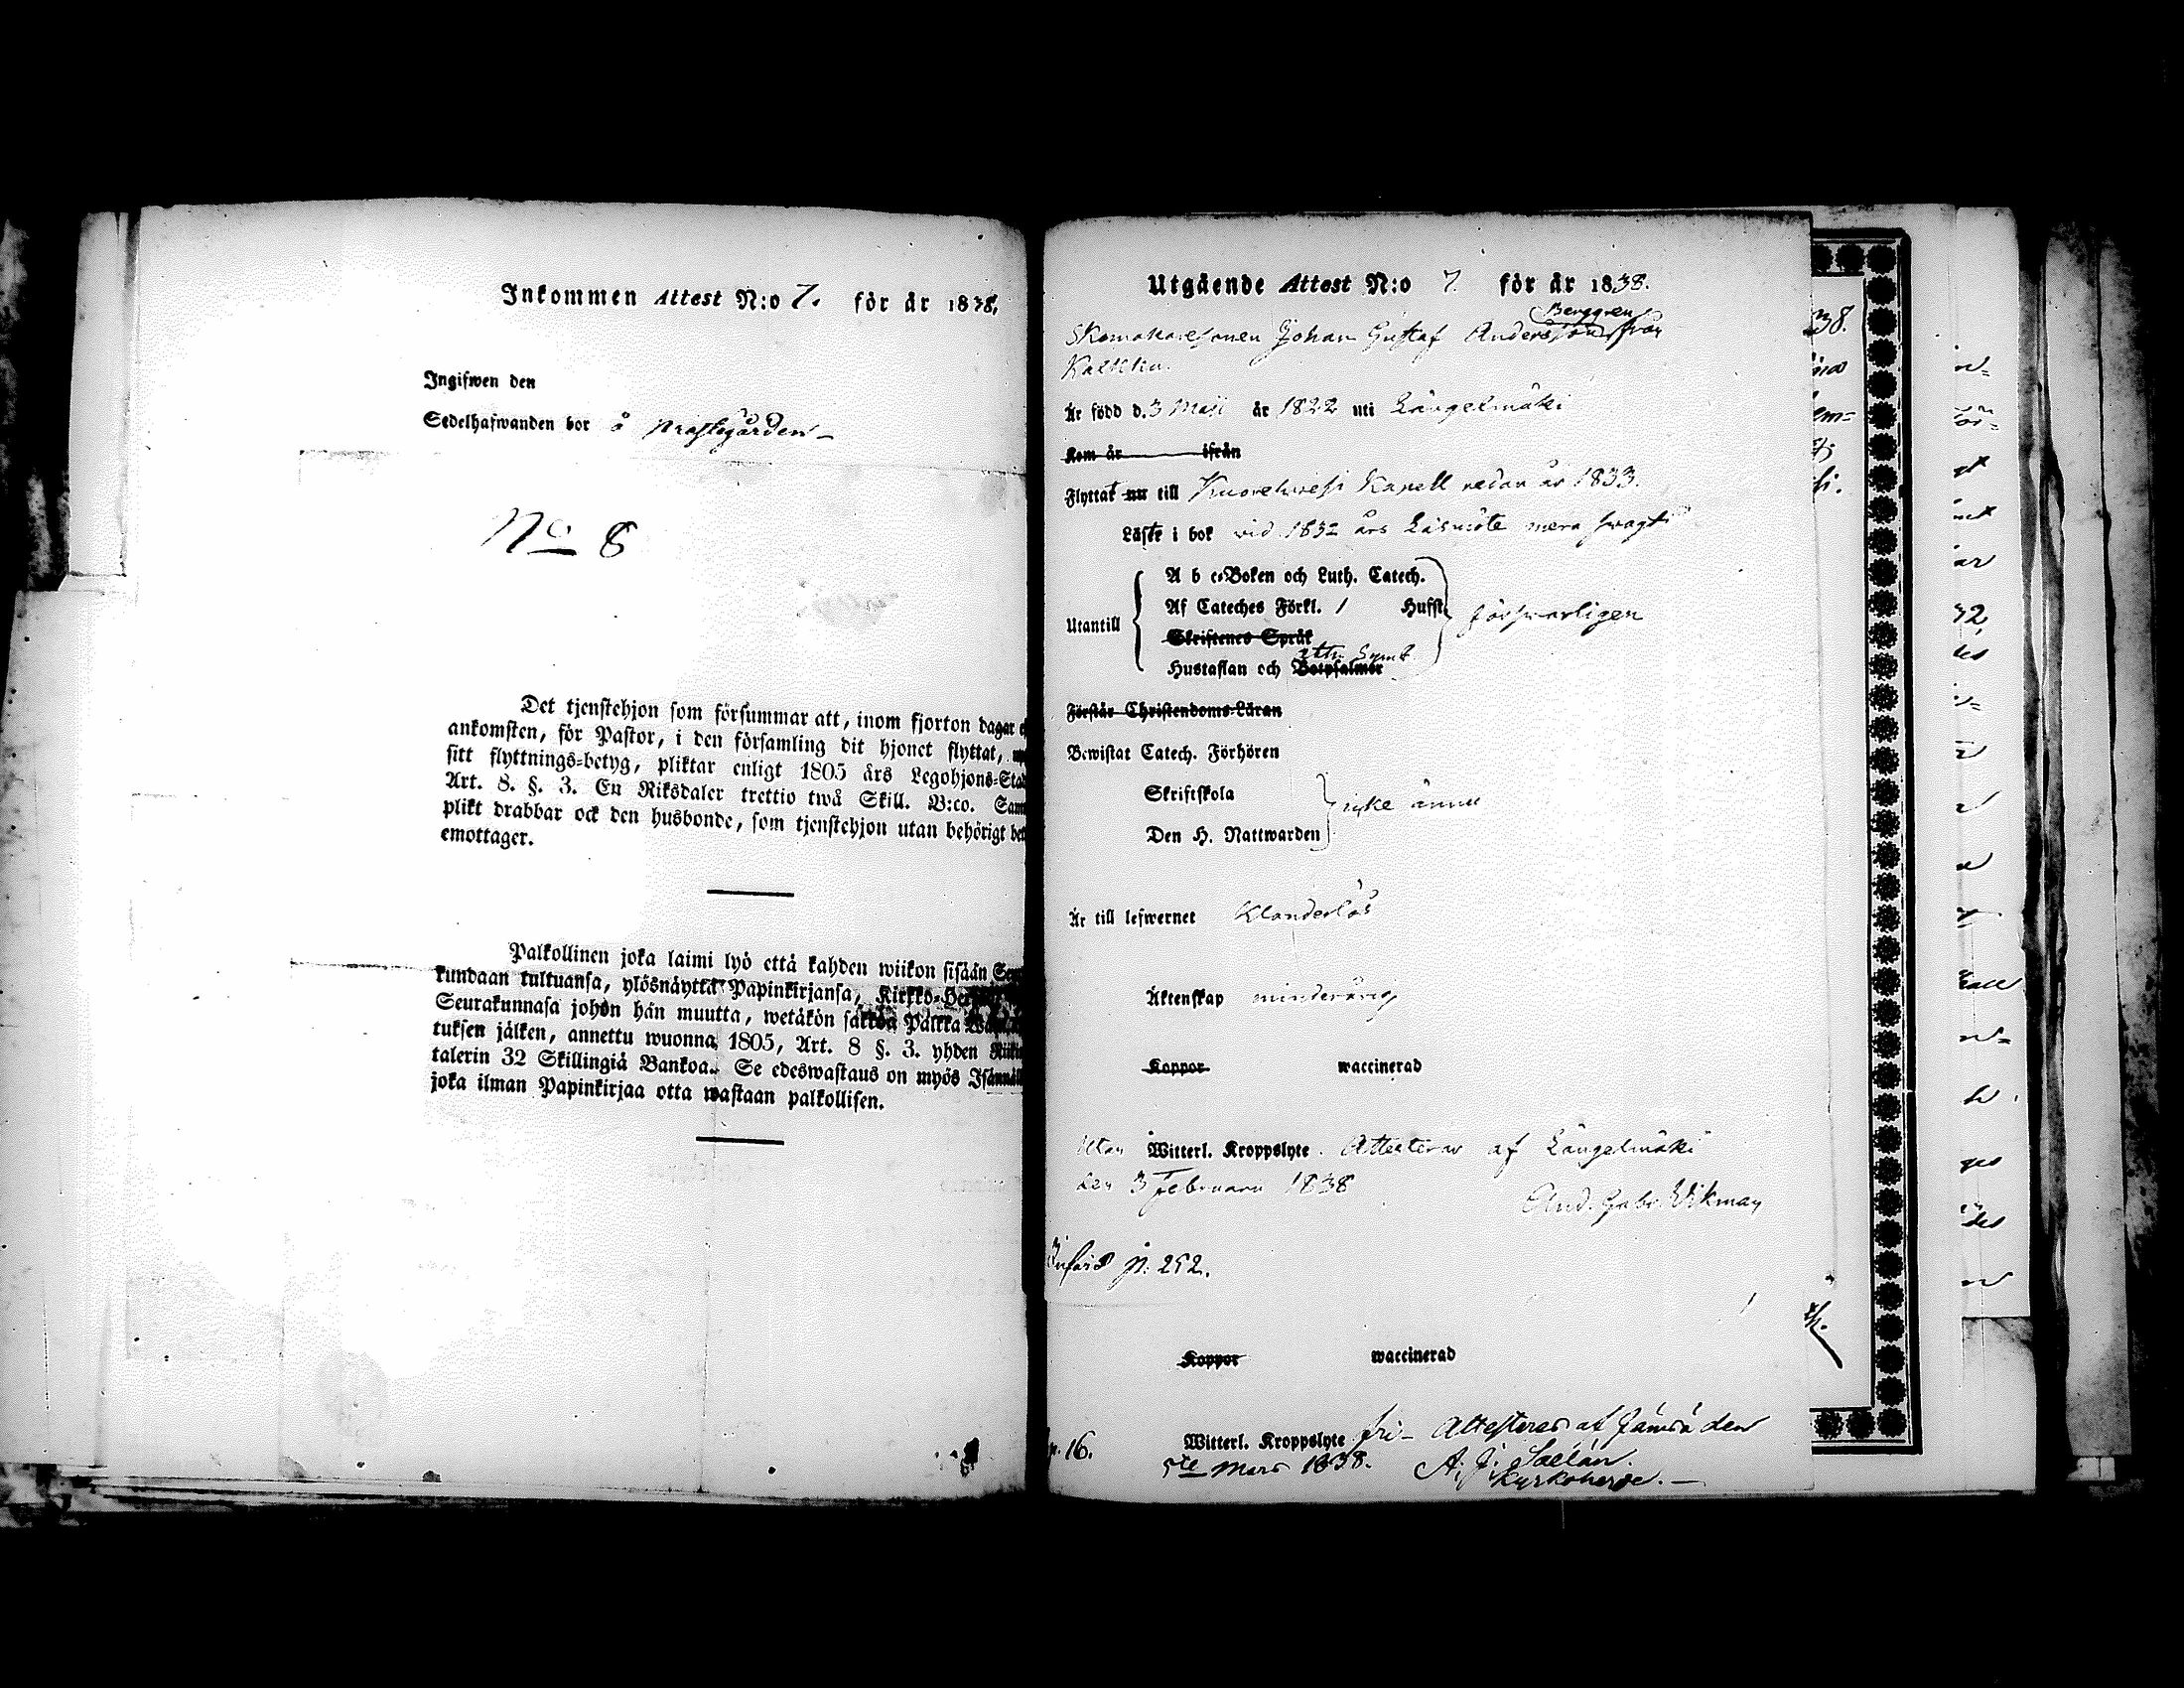 Inkommen Attest N:o 7. för år 1838.
Ingifwen den
Sedelhafwanden bor å Prästegården
No 8
Det tjenstehjon som försummar att, inom fjorton dagar
ankomsten, för Pastor, i den församling dit hjonet flyttat,
sitt flyttnings-betyg, pliktar enligt 1805 års Legohjons-Stad
Art. 8. §. 3. En Riksdaler trettio twå Skill. B:co. Sam
plikt drabbar ock den husbonde, som tjenstehjon utan behörigt
emottager.
Palkollinen joka laimi lyö että kahden wiikon sisään
kundaan tultuansa, ylösnäyttä Papinkirjansa,
Seurakunnasa johon hän muutta, wetäkön sakkoa Palkka
tuksen jälken, annettu wuonna 1805, Art. 8 §. 3. yhden
talerin 32 Skillingiä Bankoa. Se edeswastaus on myös
joka ilman Papinkirjaa otta wastaan palkollisen.
Utgående Attest N:o 7. för år 1838.
Berggren
Skomakaresonen Johan Gustaf Andersson från
Kalkku.
Är född d. 3 Maji år 1822 uti Längelmäki
Kom år ifrån
Flyttat nu till Kuorehvesi Kapell redan år 1833.
Läste i bok vid 1832 års Läsmöte mera svagt
A b c-Boken och Luth. Catech.
Af Cateches Förkl. 1 Hufst.
Utantill försvarligen
Skriftenes Språk
Symb.
Hustaflan och Botpsalmer
Förstår Christendoms-Läran
Bewistat Catech. Förhören
Skriftskola
icke ännu
Den H. Nattwarden
Är till lefwernet Klanderlös
Äktenskap minderårig
Koppor waccinerad
Utan Witterl. Kroppslyte. Attesterar af Längelmäki
den 3 Februarii 1838
And. Gabr. Wikman
Införd p. 252.
Koppor waccinerad
p. 16.
Witterl. Kroppslyte fri - Attesteras af Jämsä den
5te Mars 1838. A. J. Saelan.
Kyrkoherde.